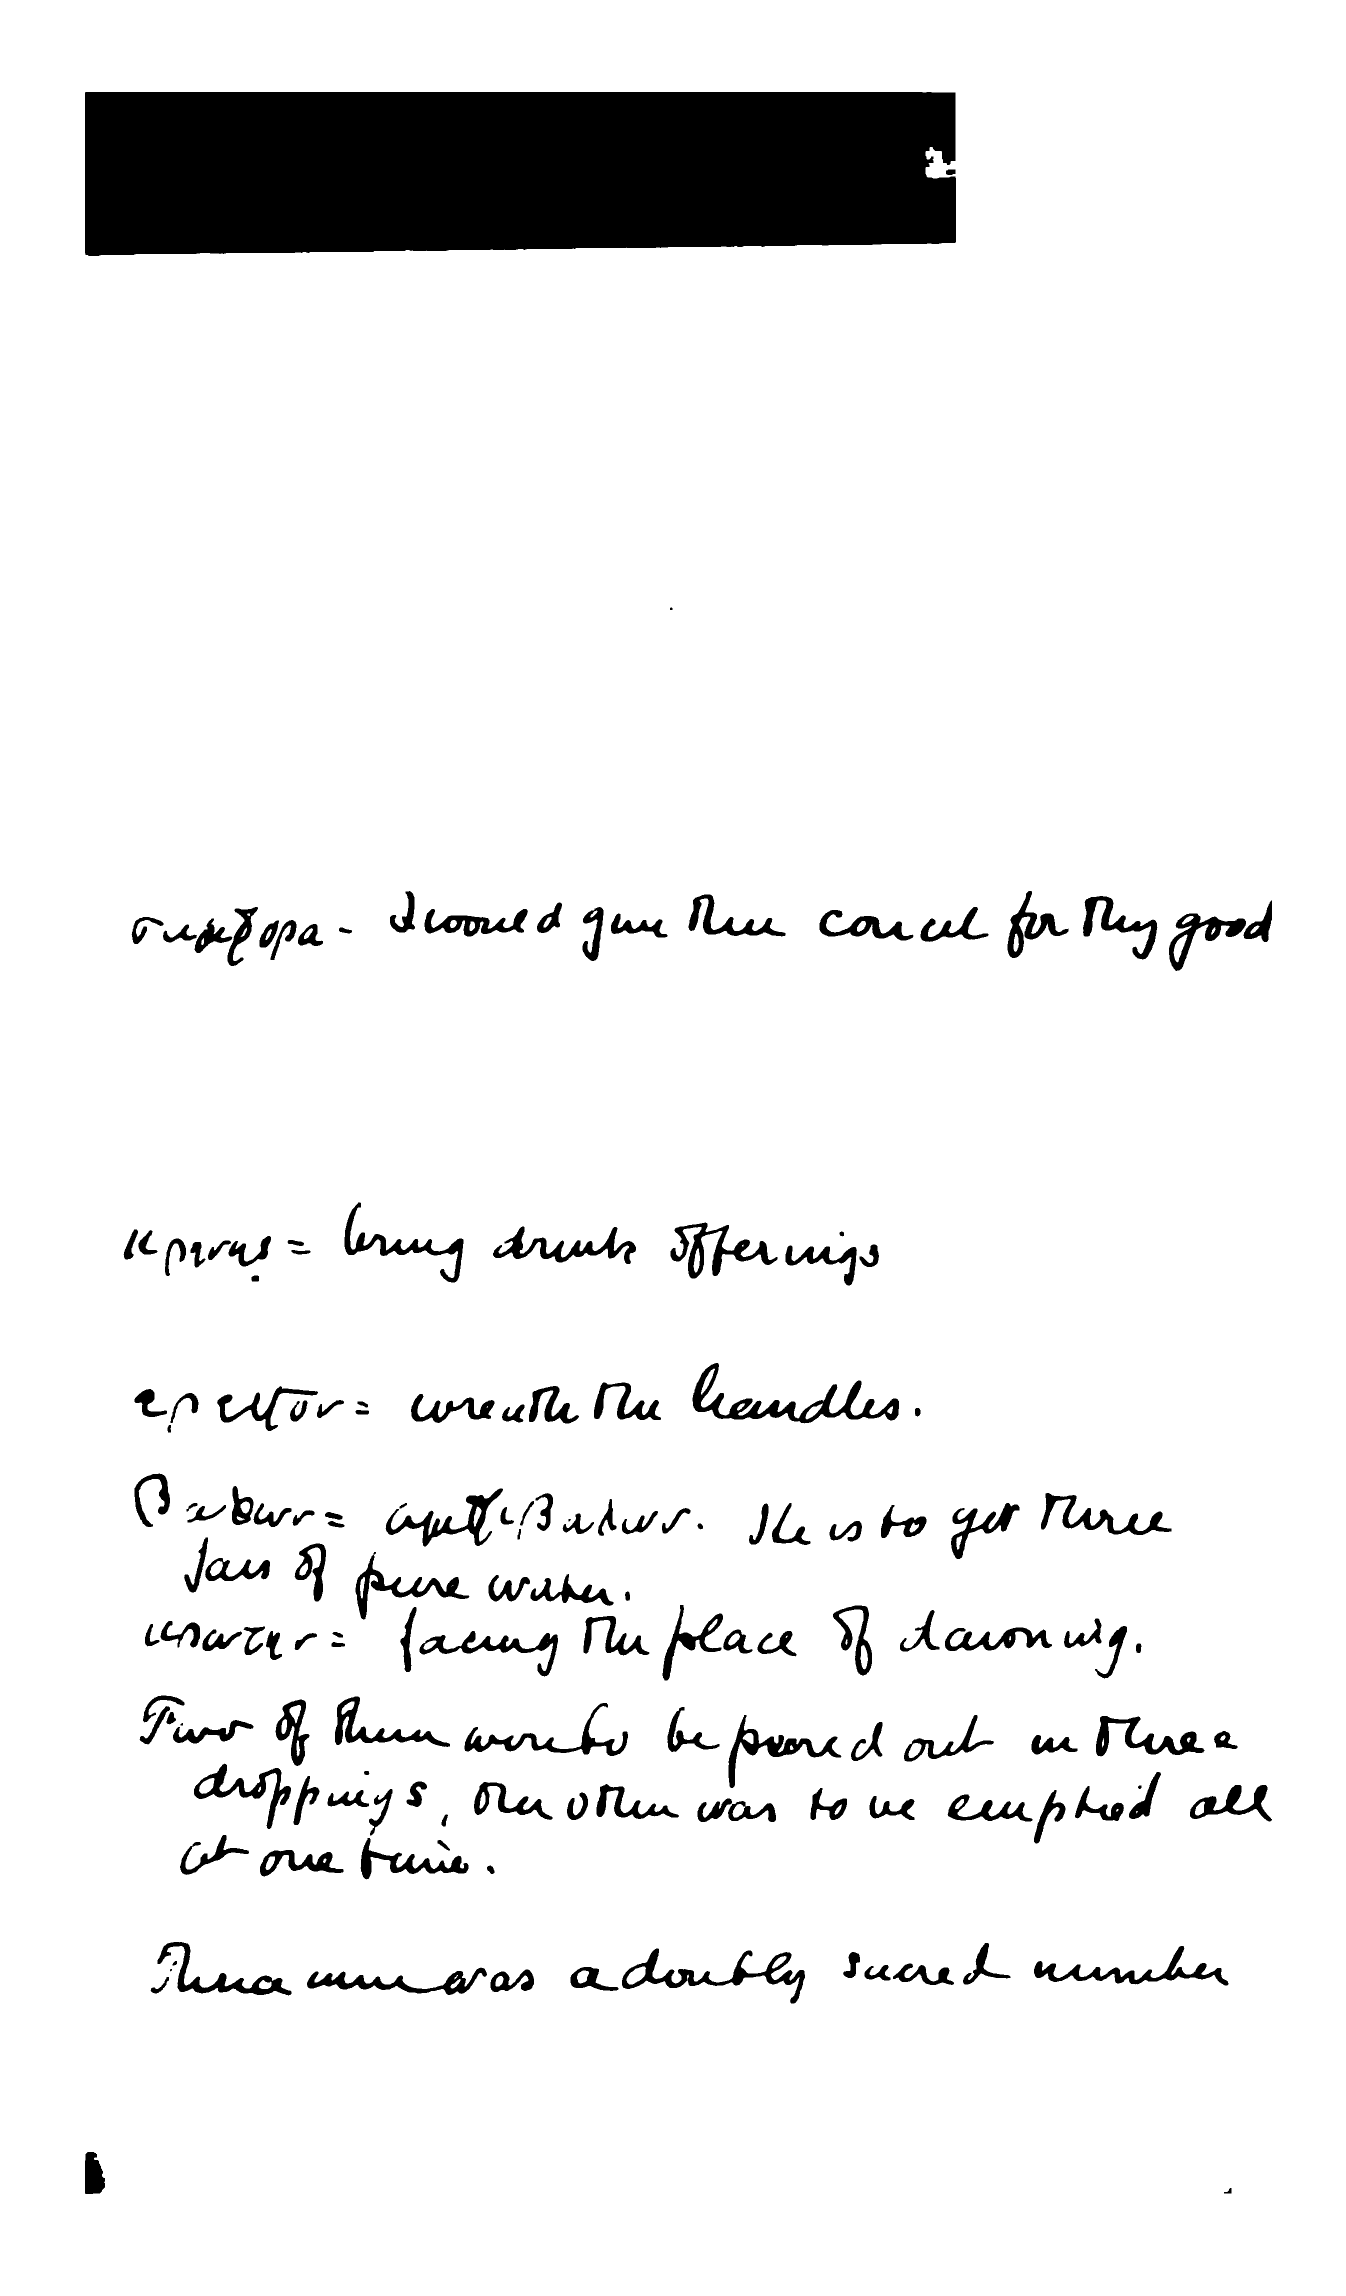 συμφορα - I would give thee councel for thy good
κρηνης = bring drink offerings
ερεψον = wreath the handles.
βαλων = αμφιβαλων. He is to get three
Jars of pure water.
= facing the place of dawning.
Two of them were to be poured out in three
droppings, the other was to be emptied all
at one time.
Three nine was a doubly sacred number